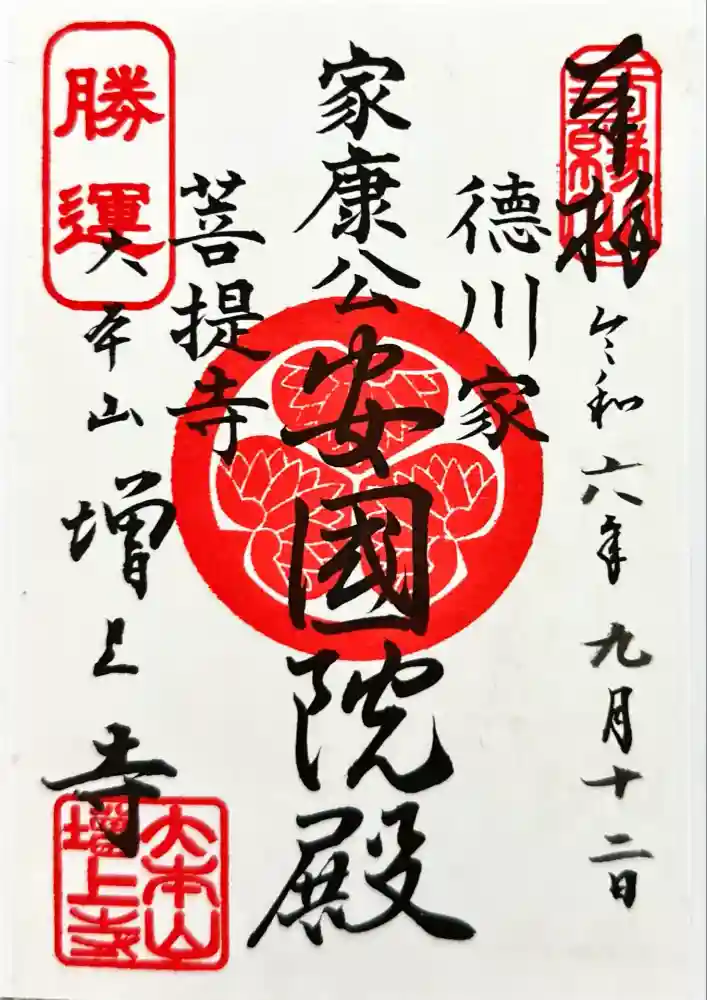 奉拝
令和六年九月十二日
徳川家
家康公安國院殿
菩提寺
勝運
大本山増上寺
大本山
増上寺